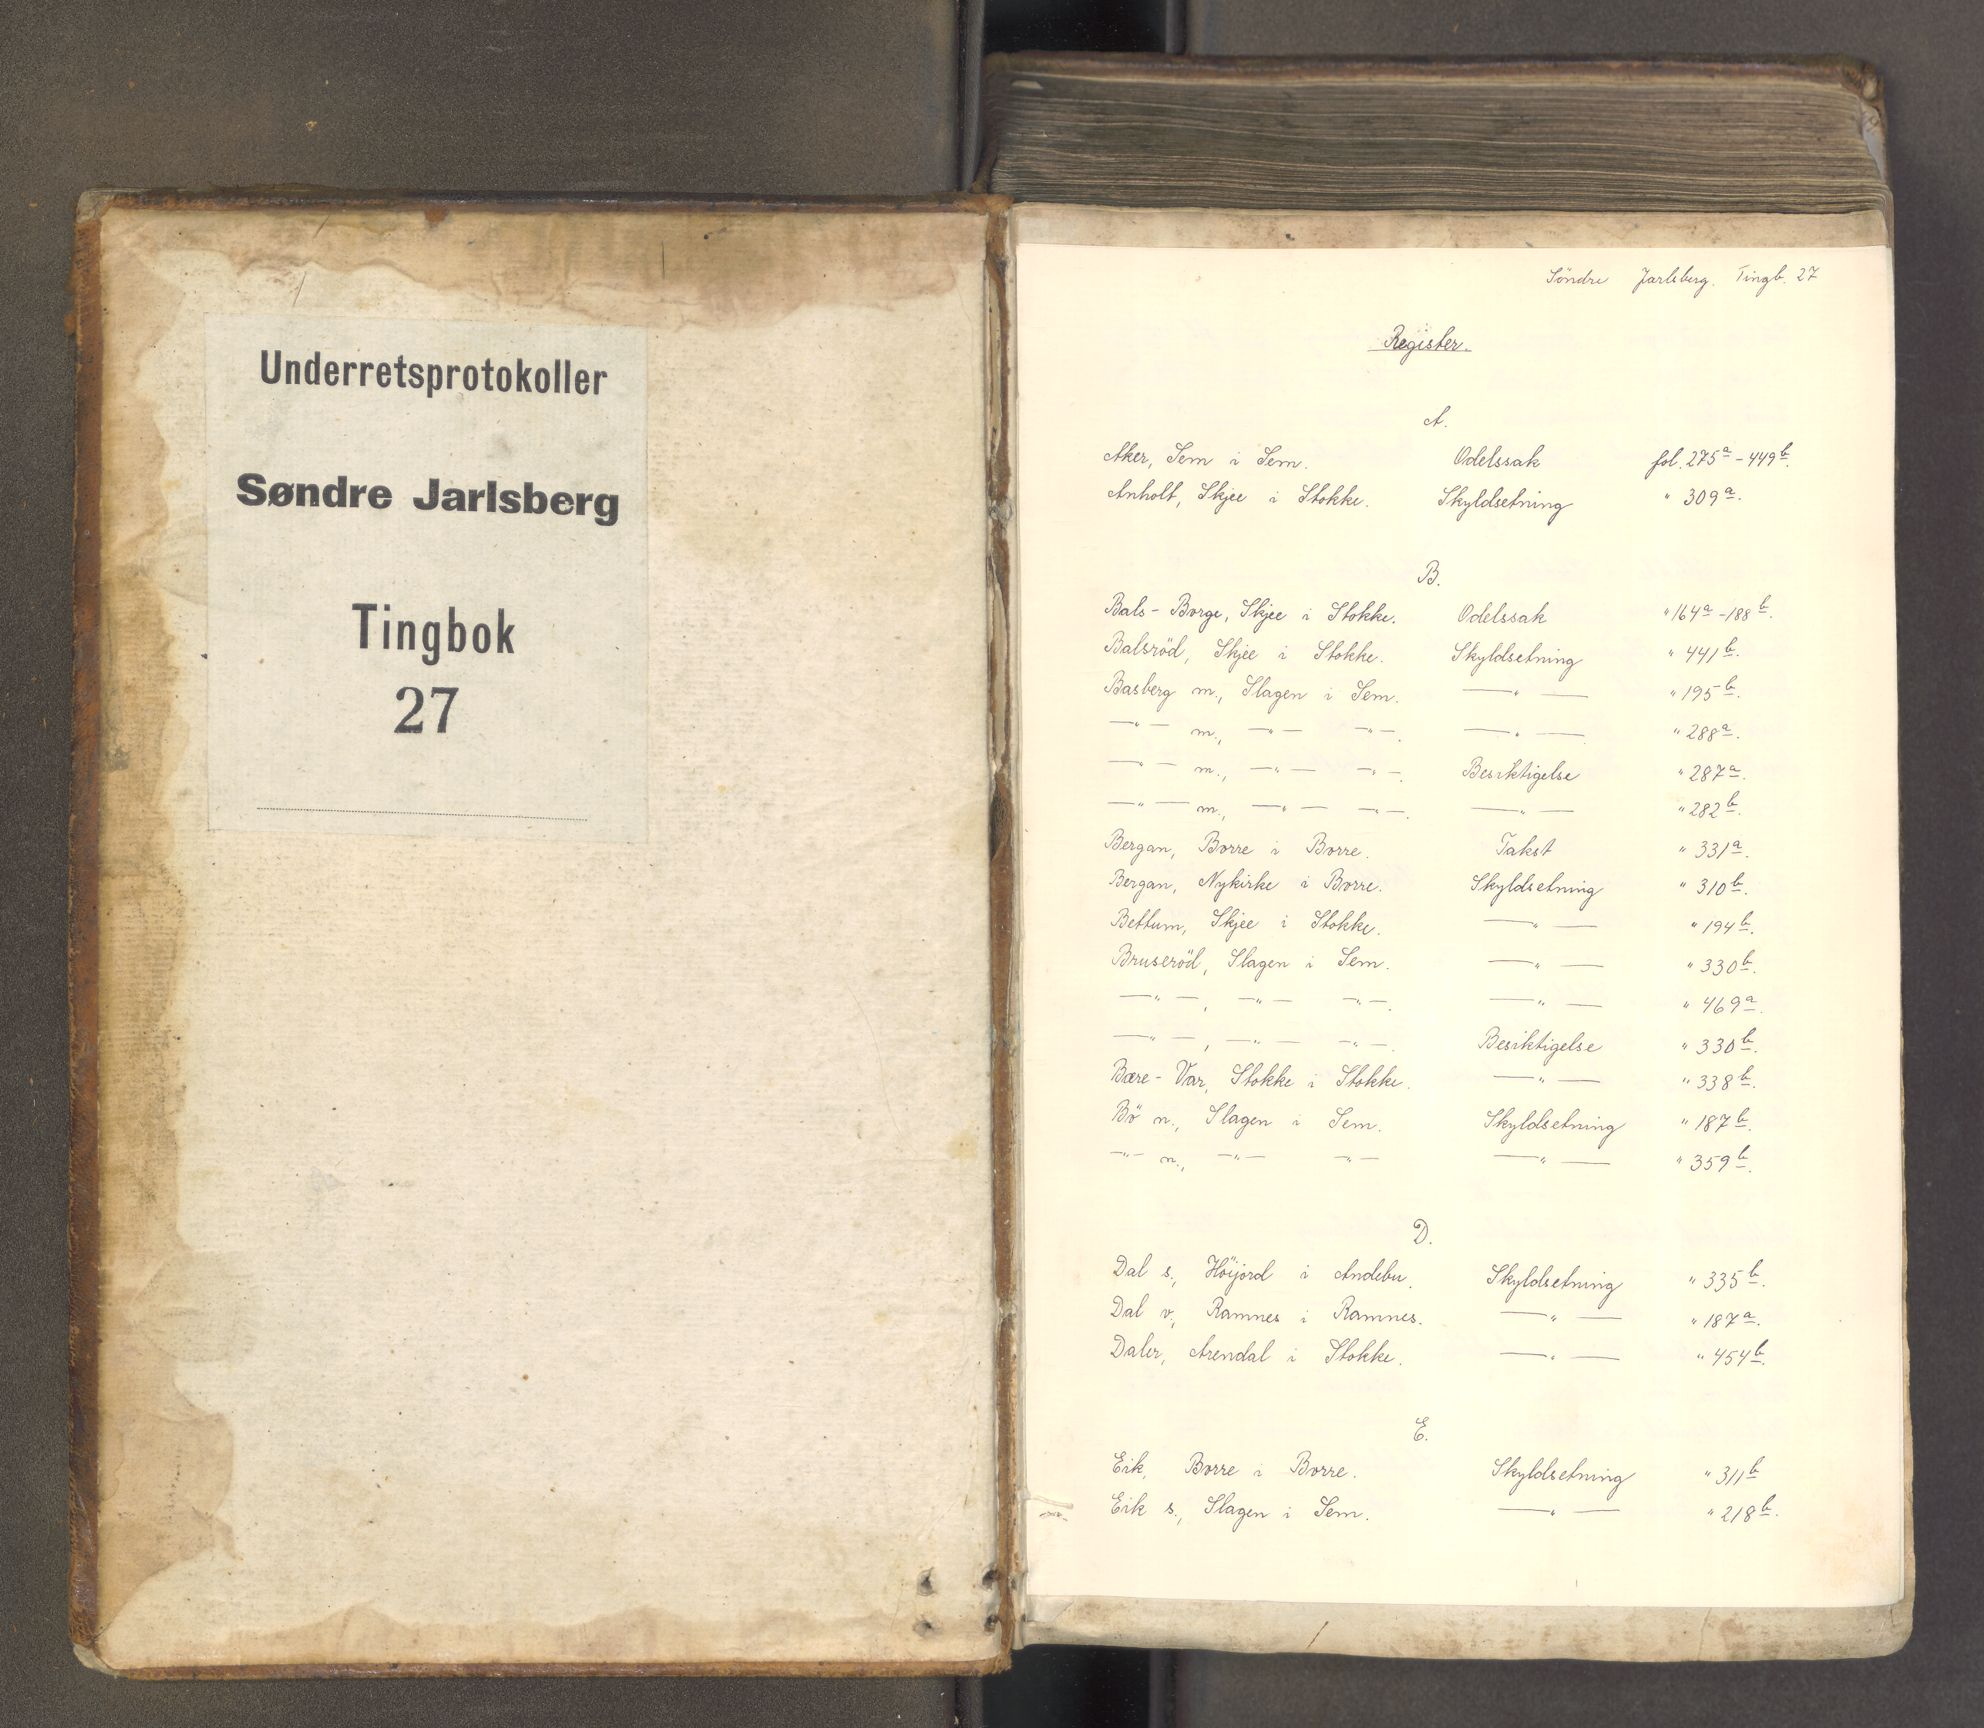 Underretsprotokoller
Søndre Jarlsberg
Tingbok
27
Søndre Jarlsberg. Tingb. 27
Register.
A.
Aker, Sem i Sem. Odelssak fol. 275a - 449b.
Anholt, Skjee i Stokke. Skyldsetning " 309a.
B.
Bals - Borge, Skjee i Stokke. Odelssak " 164a - 188b.
Balsröd, Skjee i Stokke. Skyldsetning " 441b.
Basberg m., Slagen i Sem. —"— " 195b.
—"— m., —"— —"—. —"— " 288a.
—"— m., —"— —"—. Besiktigelse " 287a.
—"— m., —"— —"—. —"— " 282b.
Bergan, Borre i Borre. Takst " 331a.
Bergan, Nykirke i Borre. Skyldsetning " 310b.
Bettum, Skjee i Stokke. —"— " 194b.
Bruseröd, Slagen i Sem. —"— " 330b.
—"—, —"— —"—. —"— " 469a.
—"—, —"— —"—. Besiktigelse " 330b.
Bære - Var, Stokke i Stokke. —"— " 338b.
Bö n., Slagen i Sem. Skyldsetning " 187b.
—"— n., —"— —"— —"— " 359b.
D.
Dal s., Höijord i Andebu. Skyldsetning " 335b.
Dal v., Ramnes i Ramnes. —"— " 187a.
Daler, Arendal i Stokke. —"— " 454b.
E.
Eik, Borre i Borre. Skyldsetning " 311b
Eik s., Slagen i Sem. —"— " 218b.